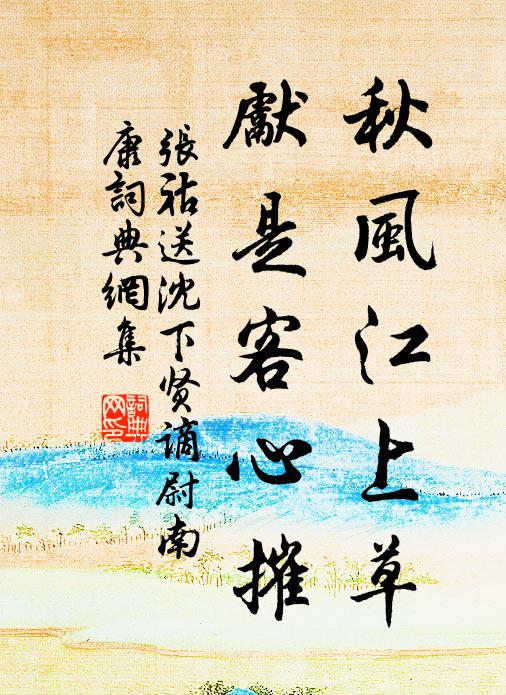 秋風江上草
獻是客心摧
張祜送沈下贤謫尉南
康詞典網集
詞典
网印